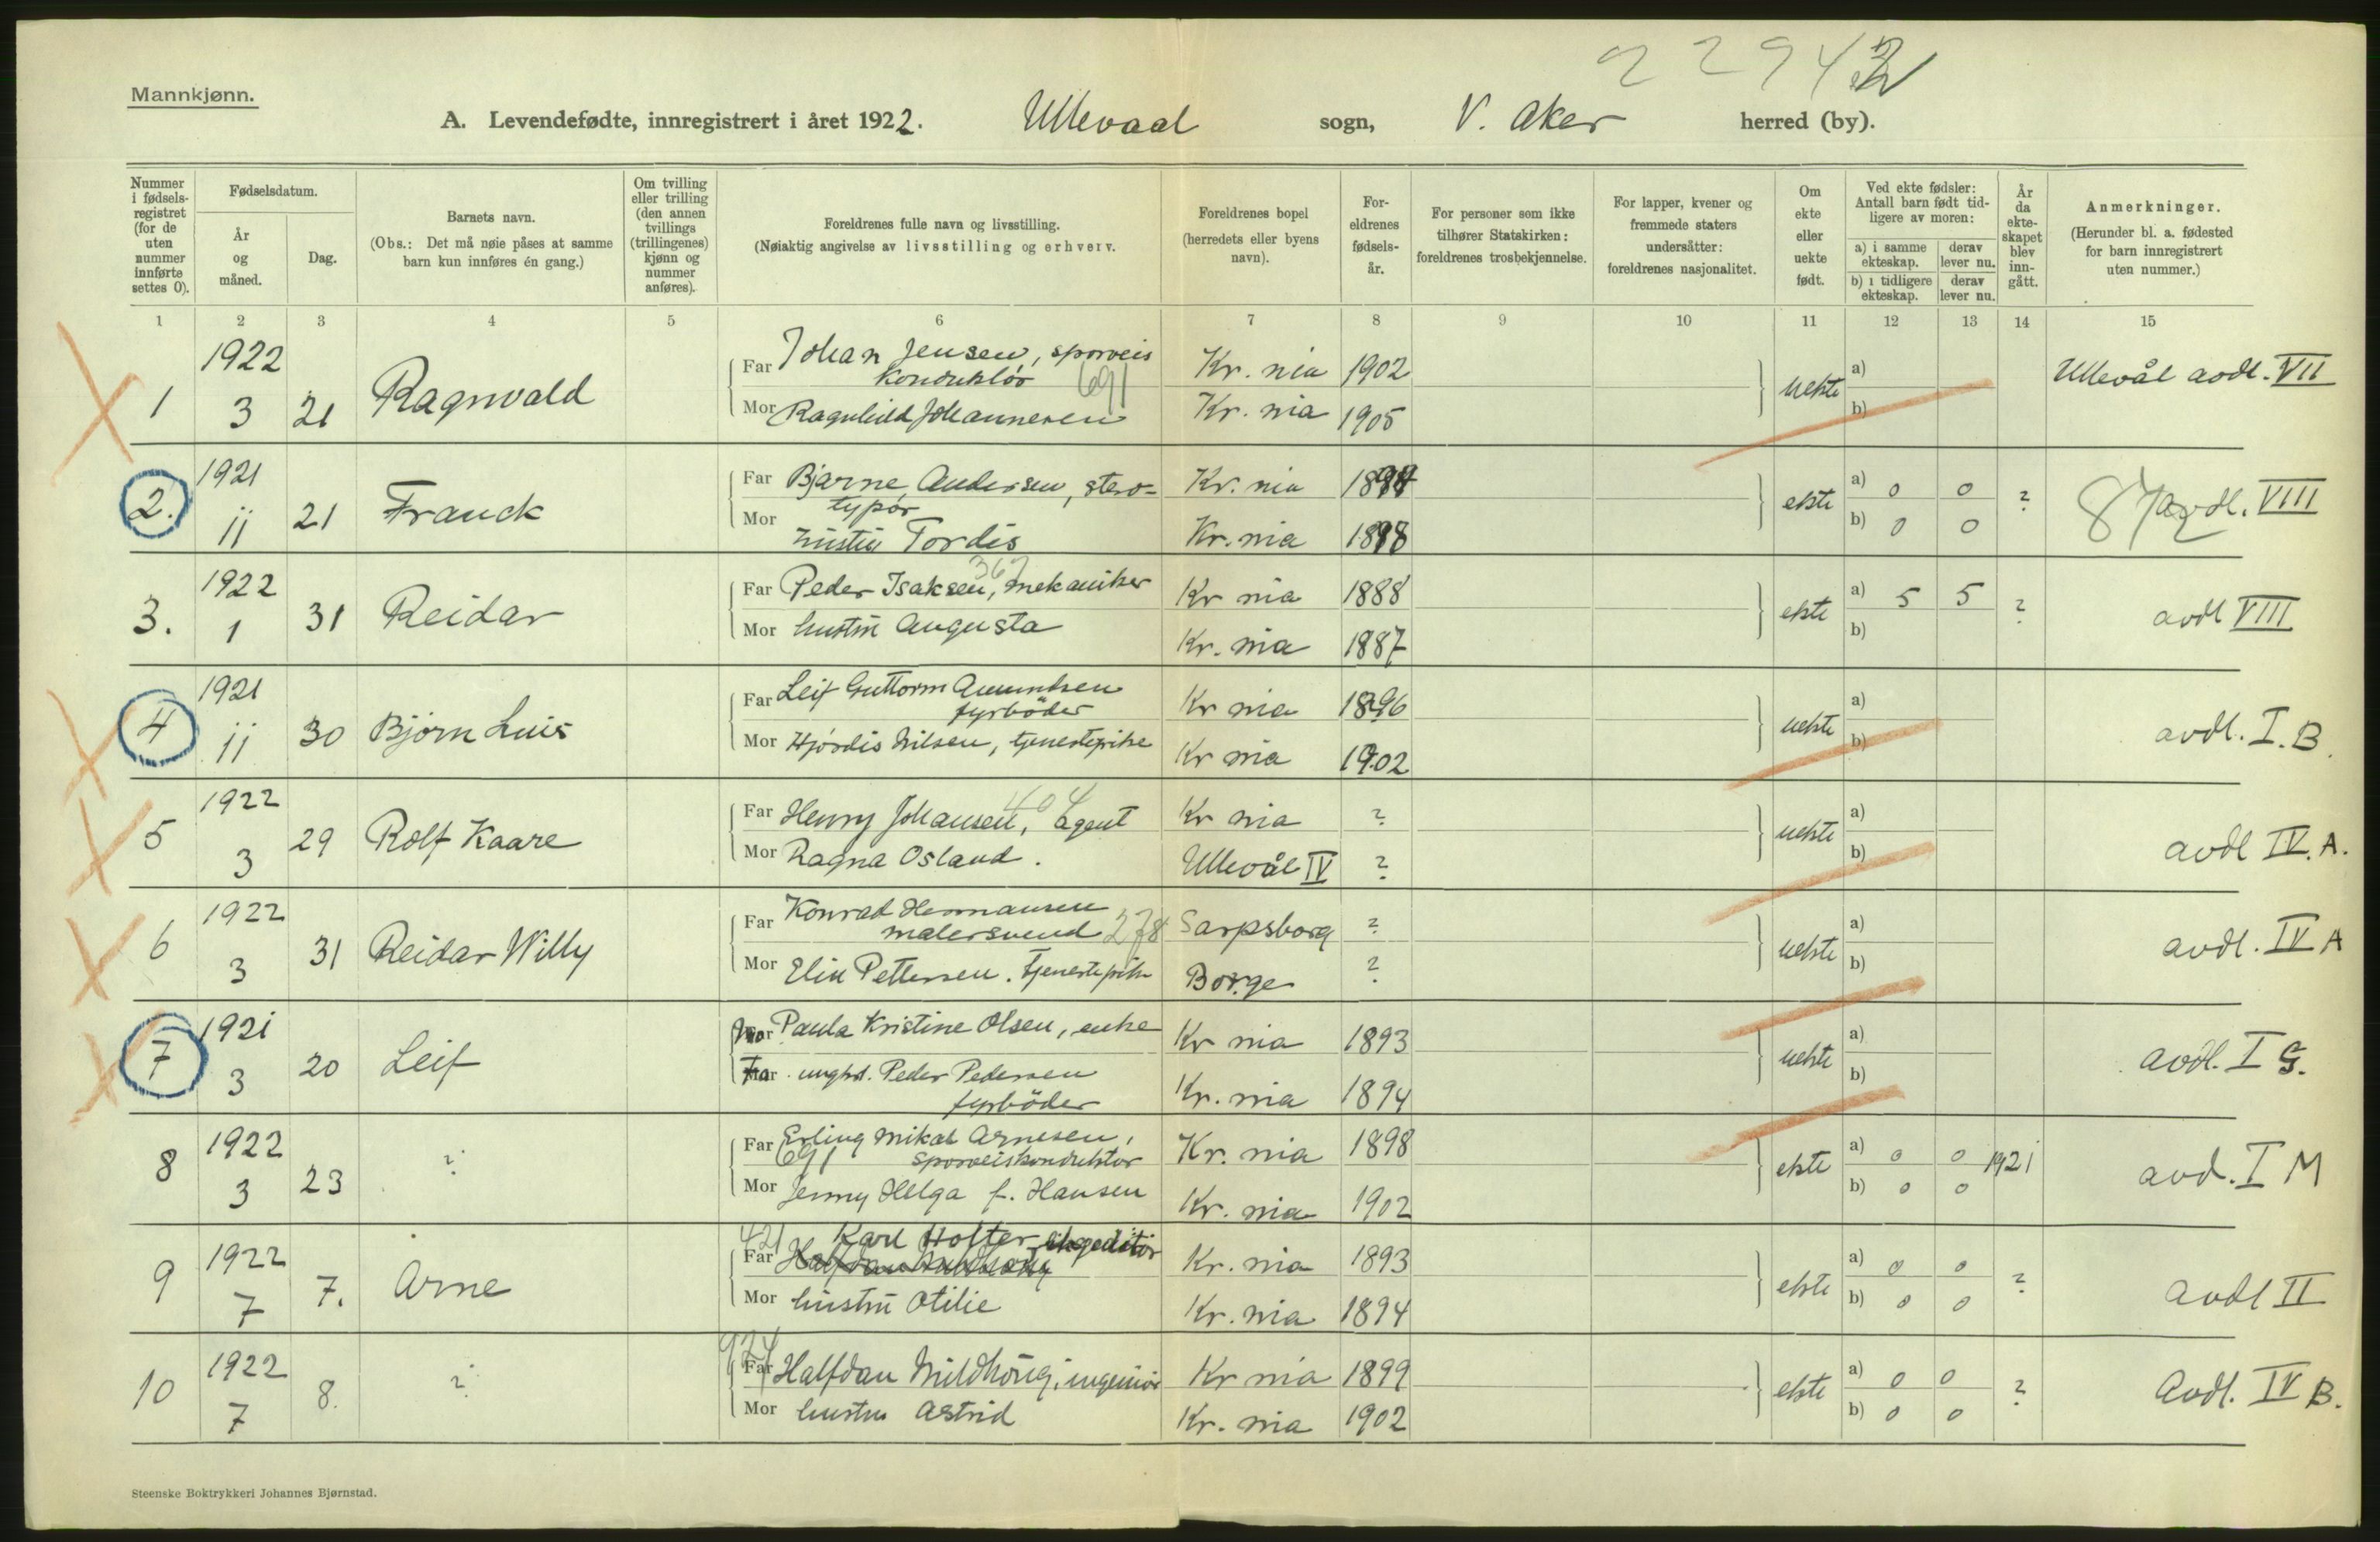 22942
Mannkjønn.
A. Levendefødte, innregistrert i året 1922. Ullevaal sogn, V. Aker herred (by).
Nummer i fødsels-registret (for de uten nummer innførte settes 0).
Fødselsdatum.
År og måned.
Dag.
Barnets navn.
(Obs.: Det må nøie påses at samme barn kun innføres én gang.)
Om tvilling eller trilling (den annen tvillings (trillingenes) kjønn og nummer anføres).
Foreldrenes fulle navn og livsstilling.
(Nøiaktig angivelse av livsstilling og erhverv.
Foreldrenes bopel (herredets eller byens navn).
For-eldrenes fødsels-år.
For personer som ikke tilhører Statskirken: foreldrenes trosbekjennelse.
For lapper, kvener og fremmede staters undersåtter: foreldrenes nasjonalitet.
Om ekte eller uekte født.
Ved ekte fødsler: Antall barn født tid-ligere av moren:
a) i samme ekteskap.
derav lever nu.
b) i tidligere ekteskap.
derav lever nu.
År da ekte-skapet blev inn-gått.
Anmerkninger.
(Herunder bl. a. fødested for barn innregistrert uten nummer.)
1 2 3 4 5 6 7 8 9 10 11 12 13 14 15
1 1922 3 21 Ragnvald Far Johan Jensen, sporveis Kr. nia 1902 uekte a) Ullevål avdl. VII
konduktør 691
Mor Ragnhild Johannesen Kr. nia 1905 b)
2. 1921 11 21 Franck Far Bjarne Andersen, stero- Kr. nia ekte a) 0 0 ? avdl. VIII
typør
Mor hustru Tordis Kr. nia 1898 b) 0 0
3. 1922 1 31 Reidar Far Peder Isaksen, mekaniker 367 Kr nia 1888 ekte a) 5 5 ? avdl VIII
Mor hustru Augusta Kr. nia 1887 b)
4 1921 11 30 Bjørn Luis Far Leif Guttorm Amundsen Kr nia 1896 uekte a) avdl. I. B.
fyrbøder
Mor Hjørdis Nilsen, tjenestepike Kr nia 1902 b)
5 1922 3 29 Rolf Kaare Far Henry Johansen, agent 404 Kr nia ? uekte a) avdl IV. A.
Mor Ragna Osland. Ullevål IV ? b)
6 1922 3 31 Reidar Willy Far Konrad Hermansen Sarpsborg ? uekte a) avdl. IV A
malersvend 278
Mor Elin Pettersen. tjenestepike Borge ? b)
7 1921 3 20 Leif Mor Paula Kristine Olsen, enke Kr nia 1893 uekte a) avdl. I G.
Far ungk. Peder Pedersen Kr. nia 1894 b)
fyrbøder
8 1922 3 23 ? Far Erling Mikal Arnesen, Kr. nia 1898 ekte a) 0 0 1921 avd. I M
691 sporveiskonduktør
Mor Jenny Helga f. Hansen Kr. nia 1902 b) 0 0
421 Karl Hofter ekspeditør
9 1922 7 7. Arne Far Kr. nia 1893 ekte a) 0 0 ? avdl II
Mor hustru Otilie Kr. nia 1894 b) 0 0
924
10 1922 7 8. ? Far Halfdan Mildhöng, ingeniør Kr nia 1899 ekte a) 0 0 ? Avdl. IV B.
Mor hustru Astrid Kr. nia 1902 b) 0 0
Steenske Boktrykkeri Johannes Bjørnstad.